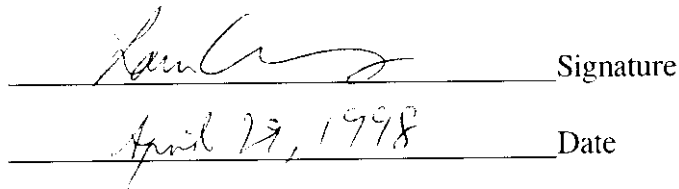 Signature
April 29, 1998 Date